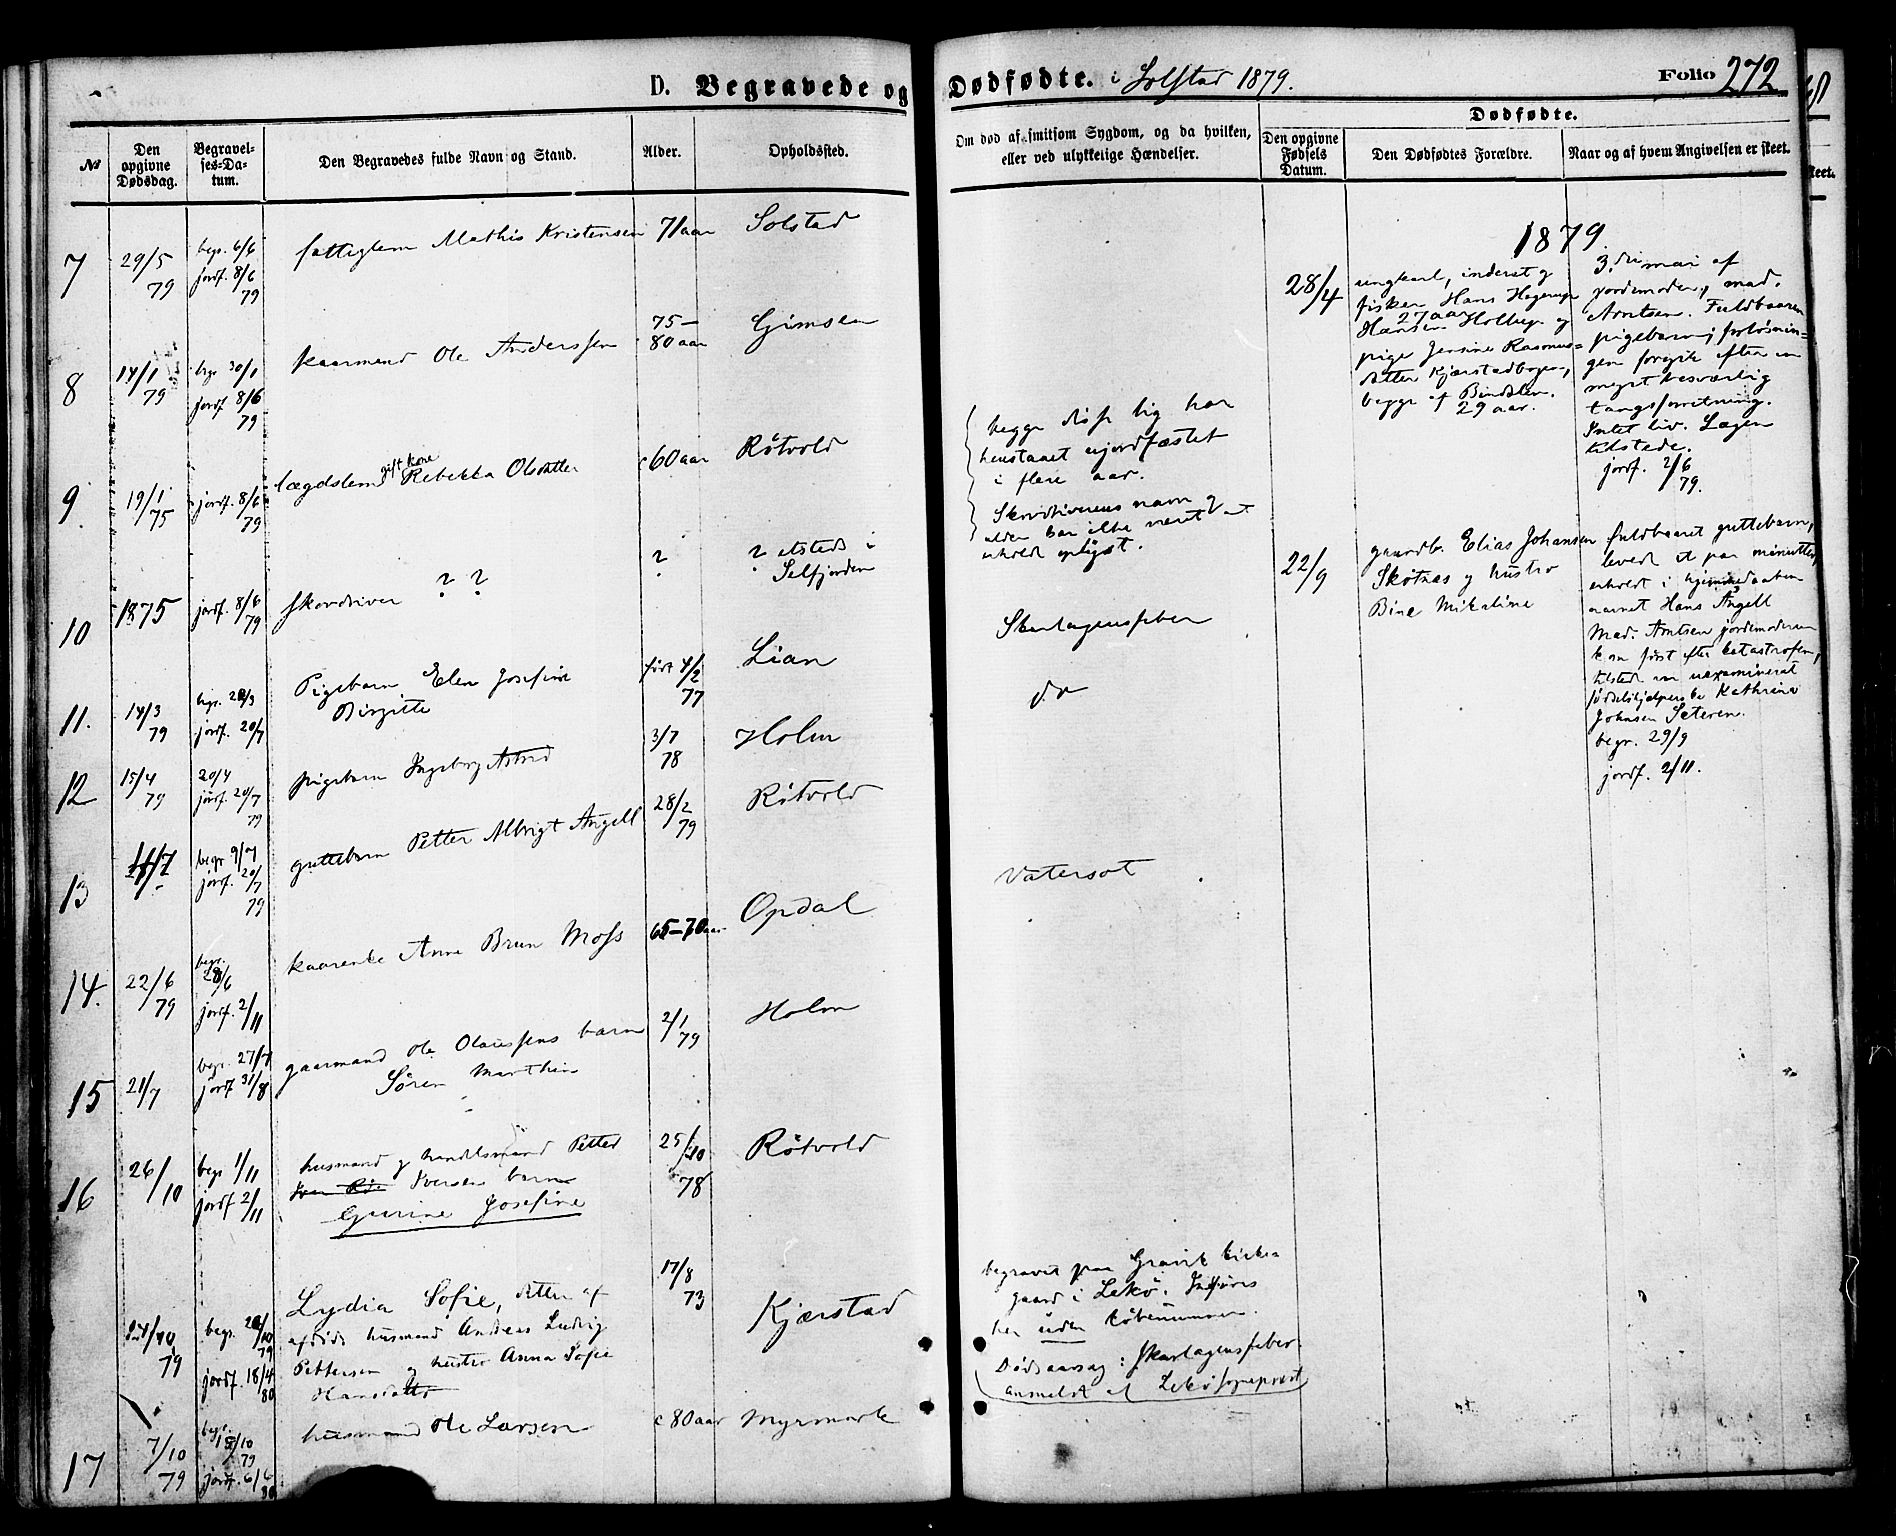 D. Begravede og Dødfødte. i Solstad 1879. Folio 272
№
Den opgivne Dødsdag.
Begravelses-Datum.
Den Begravedes fulde Navn og Stand.
Alder.
Opholdssted.
Om død af smitsom Sygdom, og da hvilken,
eller ved ulykkelige Hændelser.
Dødfødte.
Den opgivne Fødsels Datum.
Den Dødfødtes Forældre.
Naar og af hvem Angivelsen er skeet.
7 29/5 79 begr. 6/6 jordf. 8/6 79 fattiglem Mathis Kristensen 71 aar Solstad
8 14/1 79 begr 30/1 jordf 8/6 79 kaarmand Ole Anderssen 75–80 aar Gimsen
9. 19/1 75 jordf. 8/6 79 lægdslem gift kone Rebekka Olsdatter c 60 aar Røtvold
begge disse lig har
henstaaet ujordfæstet
i flere aar.
10 1875 jordf. 8/6 79 skovdriver ? ? ? ? etsteds i
Selfjorden
Skovdriverens navn og
alder har ikke været at
erholde oplyst.
11. 14/3 79 begr. 20/3 jordf. 20/7 Pigebarn Elen Josefine
Birgitte født 4/2 77 Lian Skarlagensfeber
12 15/4 79 20/4 jordf. 20/7 79 pigebarn Ingeborg Astrid 3/7 78 Holm do
13 4/7 begr 9/7 jordf. 20/7 79 guttebarn Petter Albrigt Angell 28/2 79 Røtvold
14. 22/6 79 begr. 28/6 jordf. 2/11 kaarenke Anne Brun Moss 65–70 aar Opdal Vatersot
15 21/7 begr. 27/7 jordf 31/8 gaarmand Ole Olaussens barn
Søren Marthin 2/1 79 Holm
16 26/10 begr 1/11 jordf 2/11 husmand og handelsmand Petter
Iversen barn
Gurine Josefine 25/10 78 Røtvold
79 begr. 28/10 79 jordf. 18/4 80 Lydia Sofie, datter af
afdøde husmand Andreas Ludvig
Pettersen og hustro Anna Sofie
Hansdatter 17/8 73 Kjærstad
begravet paa Gravik kirke-
gaard i Lekø. Indføres
her uden løbenummer.
Dødsaarsag: skarlagensfeber
anmeldt af Lekø sogneprest
17 7/10 79 begr. 18/10 79 jordf. 6/6 80 husmand Ole Larsen c 80 aar Myrmark
1879.
28/4
ungkarl, inderst og
fisker Hans Hagerup
27 aar
Hansen Holberg og
pige Jensine Rasmus-
datter Kjærstadbogen,
begge af Bindalen.
29 aar.
3.die mai af
jordemoder, mad.
Arntsen. Fuldbaaren
pigebarn; forløsnin-
gen foregik efter en
meget besværlig
tangforretning.
Intet liv. Lægen
tilstede.
jordf. 2/6 79.
22/9
gaardb. Elias Johansen
Skotnæs og hustro
Bine Mikaline
fuldbaaret guttebarn,
levede et par minutter,
erholdt i hjemmedaaben
navnet Hans Angell
Mad. Arntsen jordemoderen
kom først efter katastrofen,
tilstede en uexamineret
fødselshjelperske Kathrine
Johnsen Seteren.
begr. 29/9
jordf. 2/11.